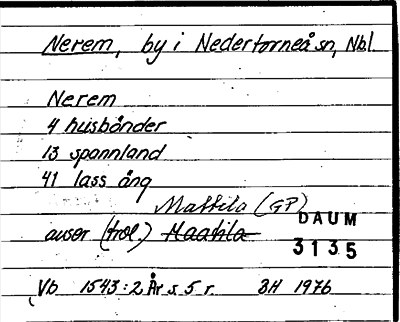 Nerem, by i Nedertorneå sn, Nbl.
Nerem
4 husbönder
13 spannland
41 lass äng
Mattila (GP)
DAUM
avser (trol.) Maatila
3135
Vb 1543:2 År s. 5 r. BH 1976